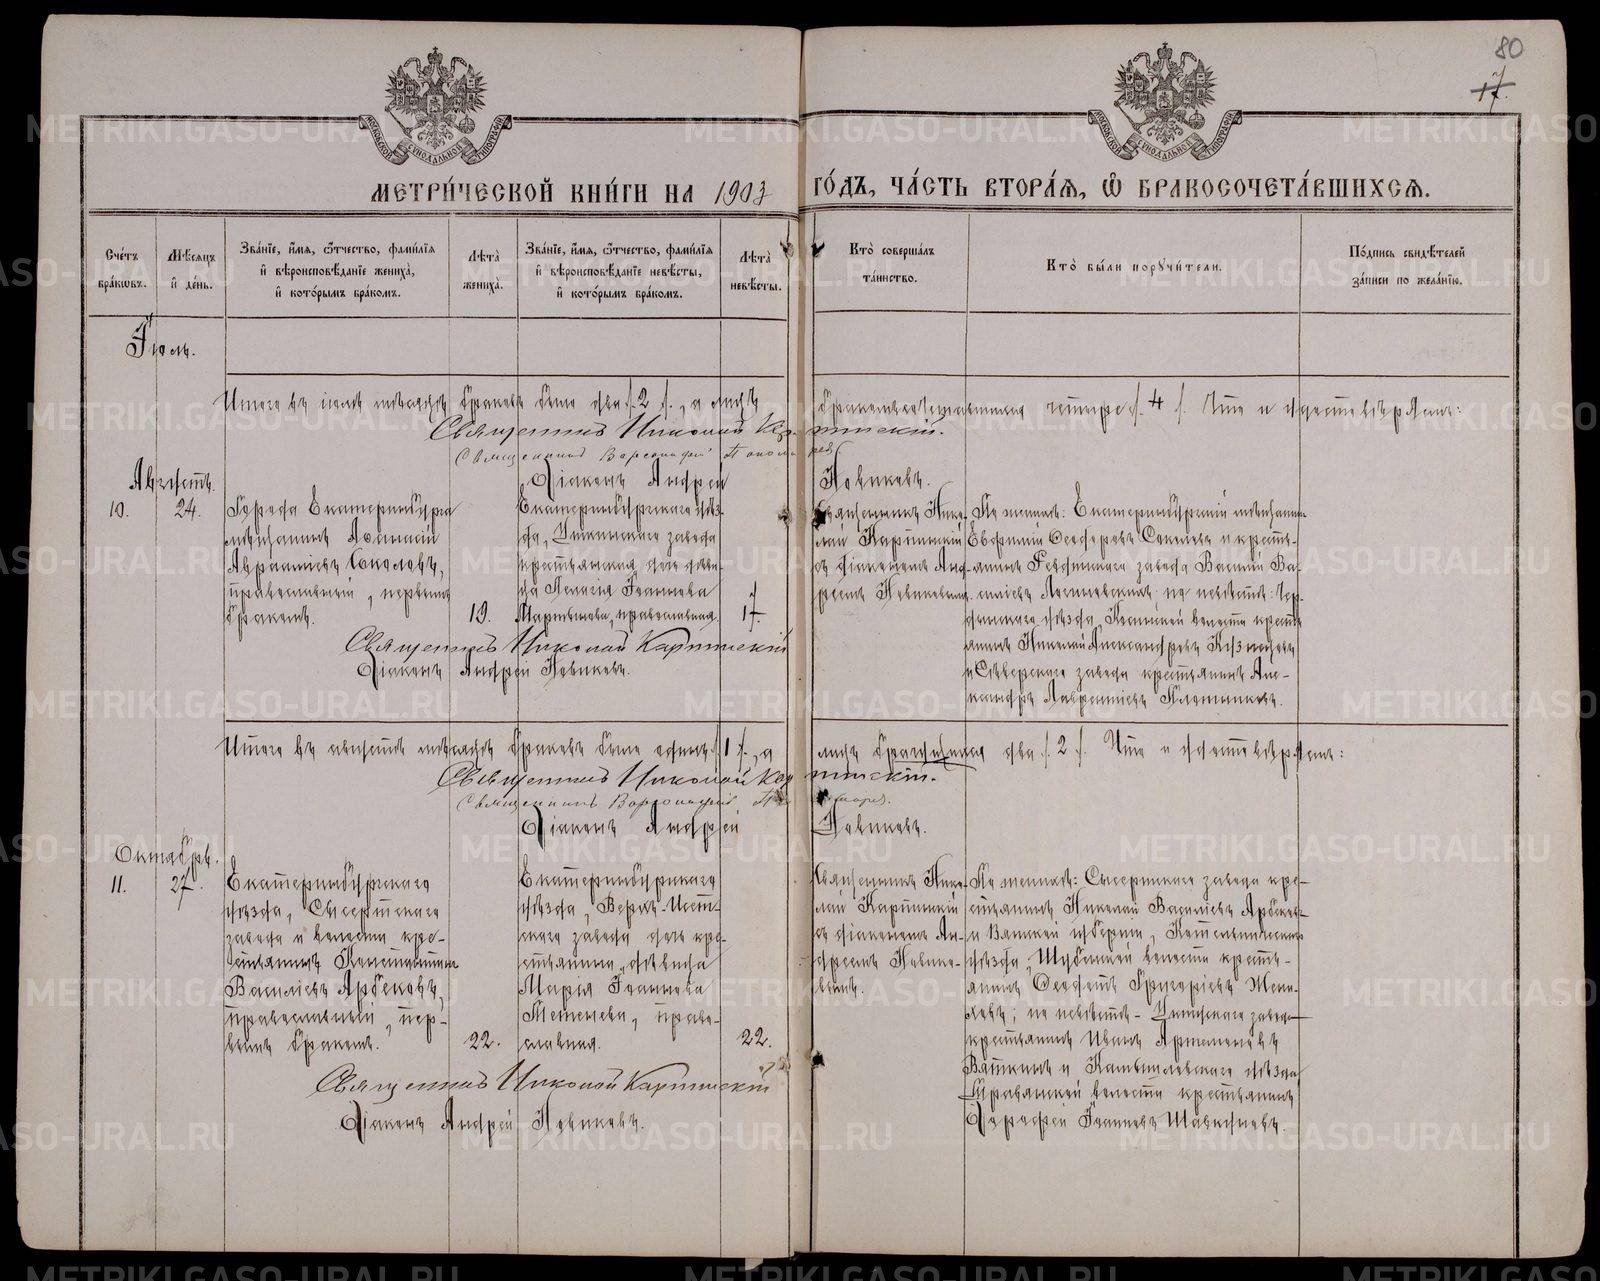 80
17.
МОСКОВСКОЙ СѴНОДАЛЬНОЙ ТИПОГРАФІИ
МОСКОВСКОЙ СѴНОДАЛЬНОЙ ТИПОГРАФІИ
МЕТРИ́ЧЕСКОЙ КНИ́ГИ НА 1903 ГО́ДЪ, ЧА́СТЬ ВТОРА́Я, Ѡ҆ БРАКОСОЧЕТА́ВШИХСЯ.
Сче́тъ бра́ковъ.
Мѣ́сяцъ и҆ де́нь.
Зва́нїе, и҆́мя, ѻ҆́тчество, фами́лїя
и҆ вѣроисповѣ́данїе жениха̀,
и҆ кото́рымъ бра́комъ.
Лѣта̀ жениха̀.
Зва́нїе, и҆́мя, ѻ҆́тчество, фами́лїя
и҆ вѣроисповѣ́данїе невѣ́сты,
и҆ кото́рымъ бра́комъ.
Лѣта̀ невѣ́сты.
Кто̀ соверша́лъ
та́инство.
Кто̀ бы́ли порꙋчи́тели.
По́дпись свидѣ́телей
за́писи по жела́нїю.
Іюль.
Итого въ іюлѣ мѣсяцѣ браковъ было два /. 2 /., а лицъ бракосочетавшихся четыре /. 4 /. Что и удостовѣряемъ:
Священникъ Николай Карпинскій.
Священникъ Варсонофій Пономарев
Діаконъ Андрей Новиковъ.
Августъ.
10.
24.
Города Екатеринбурга
мѣщанинъ Афанасій
Авраміевъ Соколовъ,
православный, первымъ
бракомъ.
19.
Екатеринбургскаго уѣз-
да, Уткинскаго завода
крестьянская дочь дѣви-
ца Пелагія Іоаннова
Мартынова, православная.
17.
Священникъ Нико-
лай Карпинскій
съ діакономъ Анд-
реемъ Новиковымъ.
По женихѣ: Екатеринбургскій мѣщанинъ
Евфимій Ѳеодоровъ Соколовъ и кресть-
янинъ Ревдинскаго завода Василій Ва-
сильевъ; по невѣстѣ:
уѣзда, волости кресть-
янинъ Николай Александровъ Кузнецовъ
и Сѣверскаго завода крестьянинъ Але-
ксандръ Лаврентіевъ Плотниковъ.
Священникъ Николай Карпинскій
Діаконъ Андрей Новиковъ.
Итого въ августѣ мѣсяцѣ браковъ было одинъ /. 1 /., а лицъ два /. 2 /. Что и удостовѣряемъ:
Священникъ Николай Карпинскій.
Священникъ Варсонофій Пономарев.
Діаконъ Андрей Новиковъ.
Октябрь.
11.
27.
Екатеринбургскаго
уѣзда, Сысертскаго
завода и волости кре-
стьянинъ Константинъ
Василіевъ Арбековъ,
православный, пер-
вымъ бракомъ.
22.
Екатеринбургскаго
уѣзда, Верхъ-Исет-
скаго завода дочь кре-
стьянина, дѣвица
Марія Іоаннова
Тетенева, право-
славная.
22.
Священникъ Нико-
лай Карпинскій
съ діакономъ Ан-
дреемъ Новико-
вымъ.
По женихѣ: Сысертскаго завода кре-
стьянинъ Николай Василіевъ Арбековъ
и Вятской губерніи, Котельническаго
уѣзда, волости кресть-
янинъ Григоріевъ
по невѣстѣ - Уткинскаго завода
крестьянинъ Иванъ Артемьевъ
Вяткинъ и Камышловскаго уѣзда
Травянской волости крестьянинъ
Дорофей Іоанновъ Шавкуновъ.
Священникъ Николай Карпинскій
Діаконъ Андрей Новиковъ.
METRIKI.GASO-URAL.RU